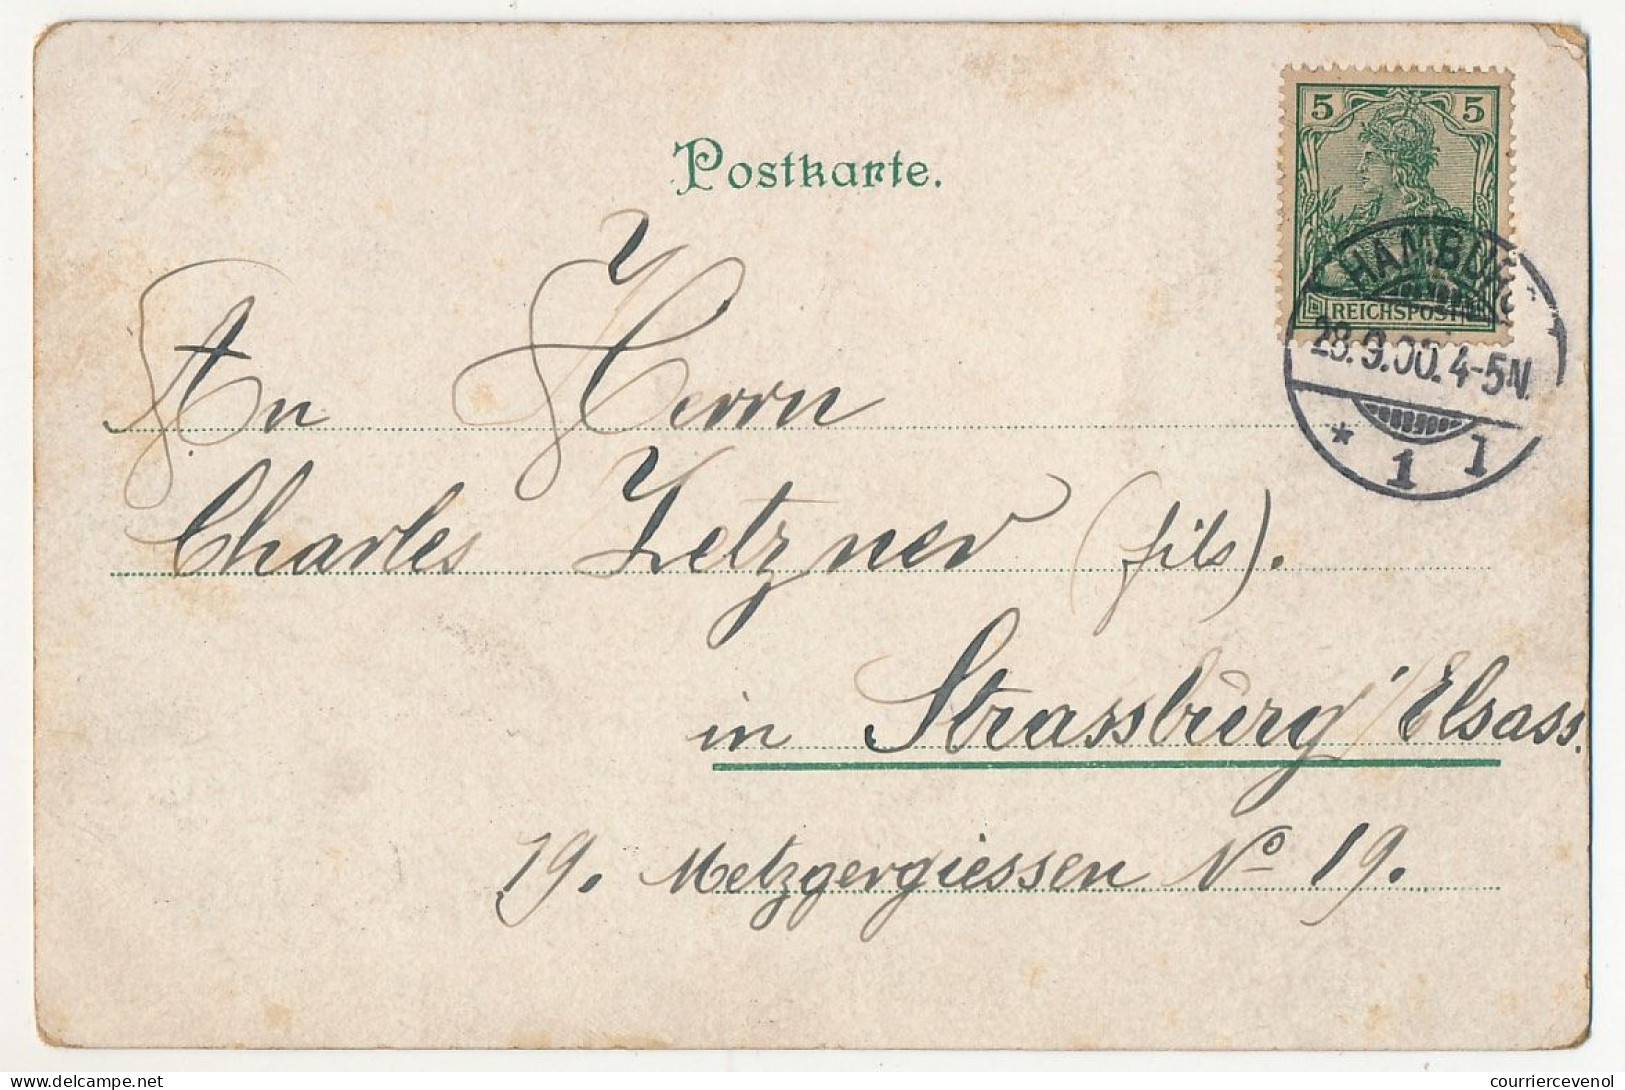 Postkarte.
5 5
REICHSPOST
HAMBURG
28.9.00.4-5N.
* 1 1
An Herrn
Charles Zetzner (fils).
in Strassburg / Elsass.
19. Metzgergiessen No 19.
delcampe.net
courriercevenol